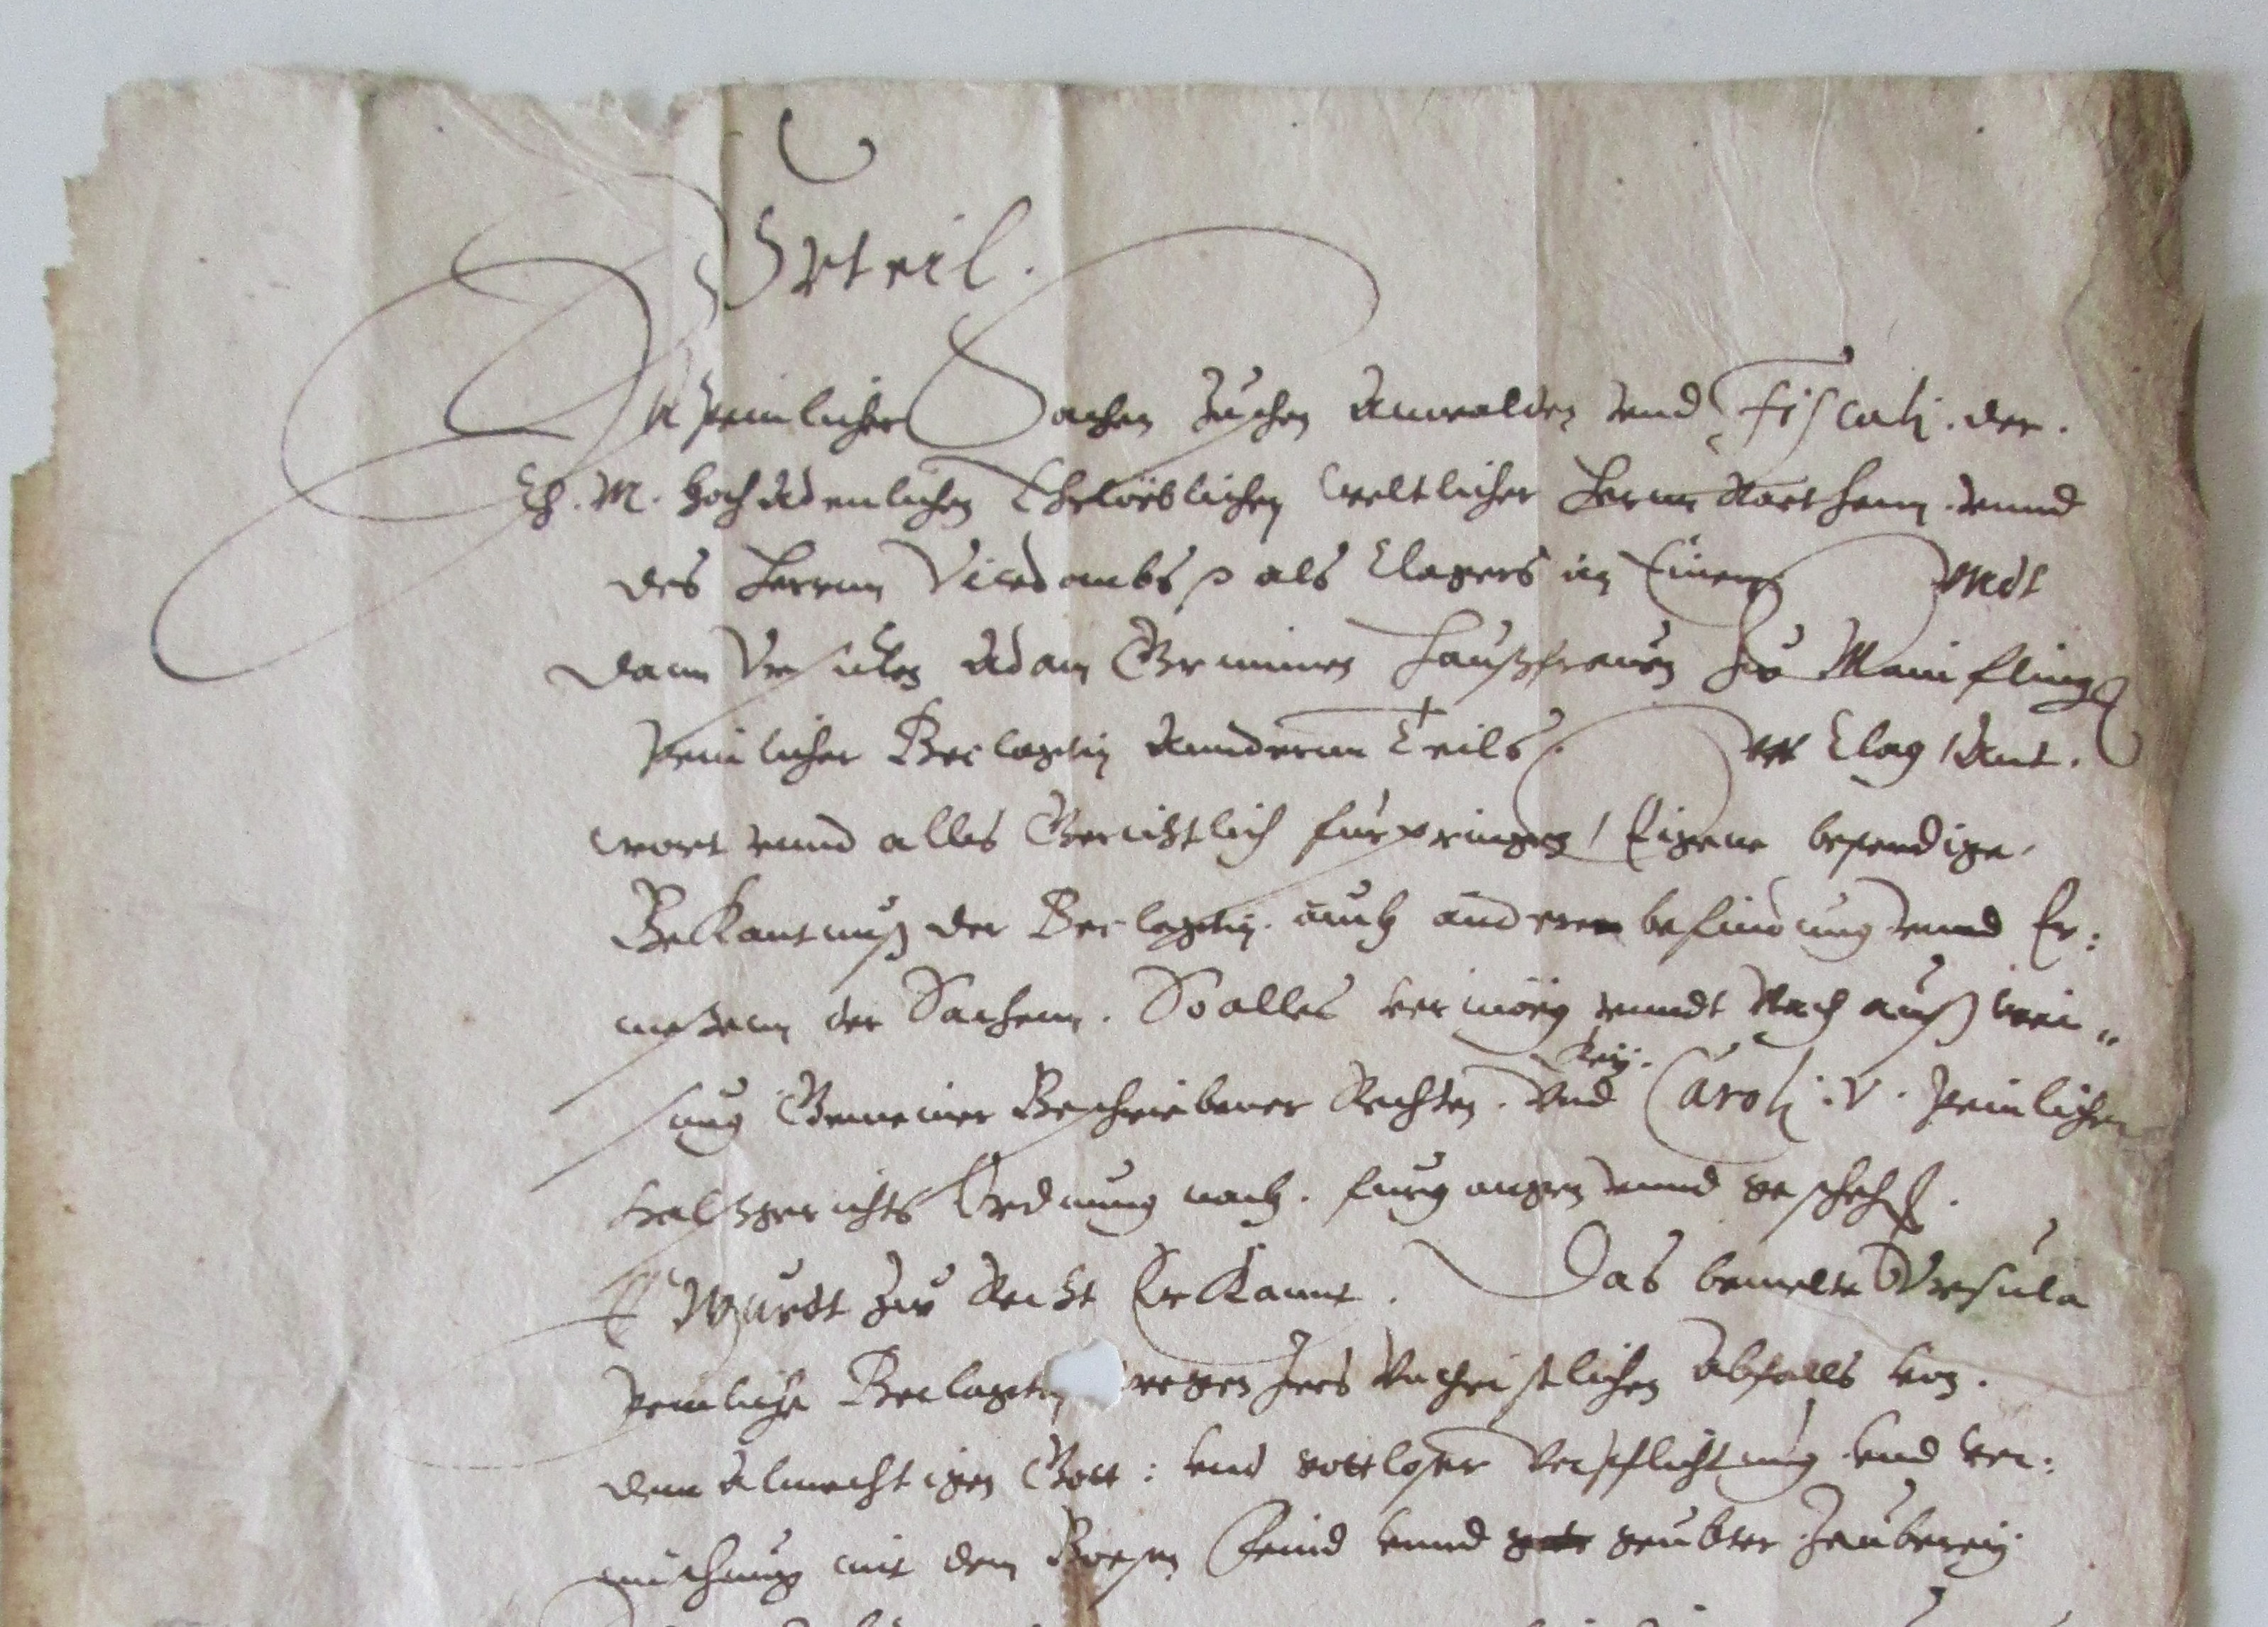 Vrteil.
In peinlicher Sachen Zuschen Anwalden vnd Fiscali. der.
M. Hochadenlichen Ehrlöeblichen weltlicher Herrn Räethenn. vnnd
des Herrnn Vicedombs p als Clagers in Einem Vndt
dann Vrsulen Adam Haußfrauen Zu
Peinlicher Beclagtin Anndernn Teils. Vff Clag / Ant.
wort vnnd alles Gerichtlich fürpringen / Eigene bestendige
Bekantnuß der Beclagtin. auch anderen befindung vnnd Er:
meßenn der Sachenn. So alles vermöeg vnndt Nach außwei"
sung Gemeiner Beschriebener Rechten. Vnd Key: Caroli. V. Peinlichen
Halßgerichts Ordnung nach. furgangen vnnd geschehen.
Wurdt Zu Recht Erkannt. Das bemelte Vrsula
Peinliche Beclagtin wegen Jres Vnchristlichen Abfalls von.
dem Almechtigen Gott: vnd gottloser Verpflichtung vnd ver:
mischung mit dem Boesen Feind vnnd geubter Zauberey